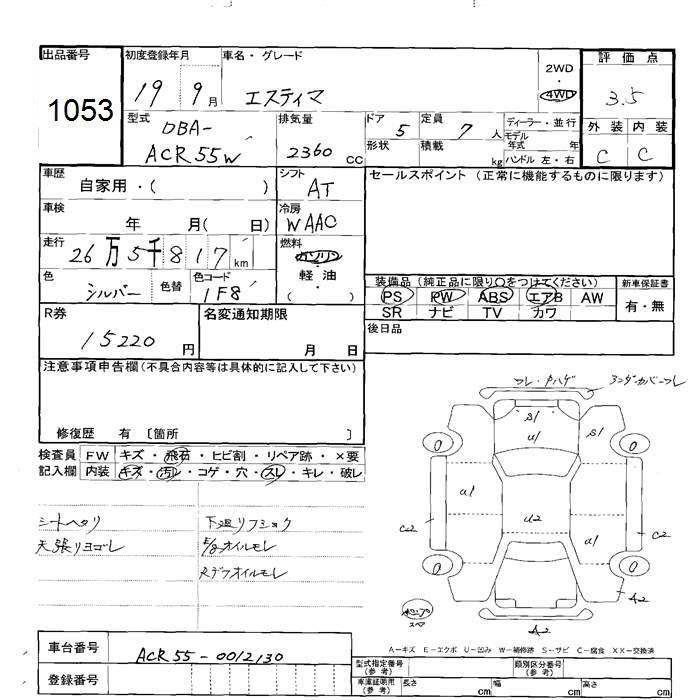 出品番号
1053
初度登録年月
19 9月
車名・グレード
エスティマ
2WD
4WD
評価点
3.5
外装 内装
C C
型式
DBA-
ACR55W
排気量
2360 cc
ドア
5
形状
定員
7 人
積載
kg
ディーラー・並行
モデル
年式 年
ハンドル 左・右
車歴
自家用・( )
シフト
AT
セールスポイント (正常に機能するものに限ります)
車検
年 月( 日)
冷房
WAAC
走行
26万5千817km
燃料
ガソリン
・
軽油
・
( )
色
シルバー
色替
色コード
1F8
装備品(純正品に限り○をつけてください)
PS PW ABS エアB AW
SR ナビ TV カワ
新車保証書
有・無
R券
15220 円
名変通知期限
月 日
後日品
注意事項申告欄(不具合内容等は具体的に記入して下さい)
修復歴 有 〔箇所 〕
検査員
記入欄
FW キズ・飛石・ヒビ割・リペア跡・×要
内装 キズ・汚レ・コゲ・穴・スレ・キレ・破レ
シートヘタリ
天張リヨゴレ
下廻リフショク
E/gオイルモレ
Rデフオイルモレ
フレ・Pハゲ
アンダーカバーフレ
S1
U1
S1
0
0
a1
C2
U2
a1
C2
0
0
A2
A2
スペア
A−キズ E−エクボ U−凹み W−補修跡 S−サビ C−腐食 XX−交換済
車台番号
ACR55-0012130
登録番号
型式指定番号
(参考)
類別区分番号
(参考)
車庫証明用
(参考)
長さ cm 幅 cm 高さ cm